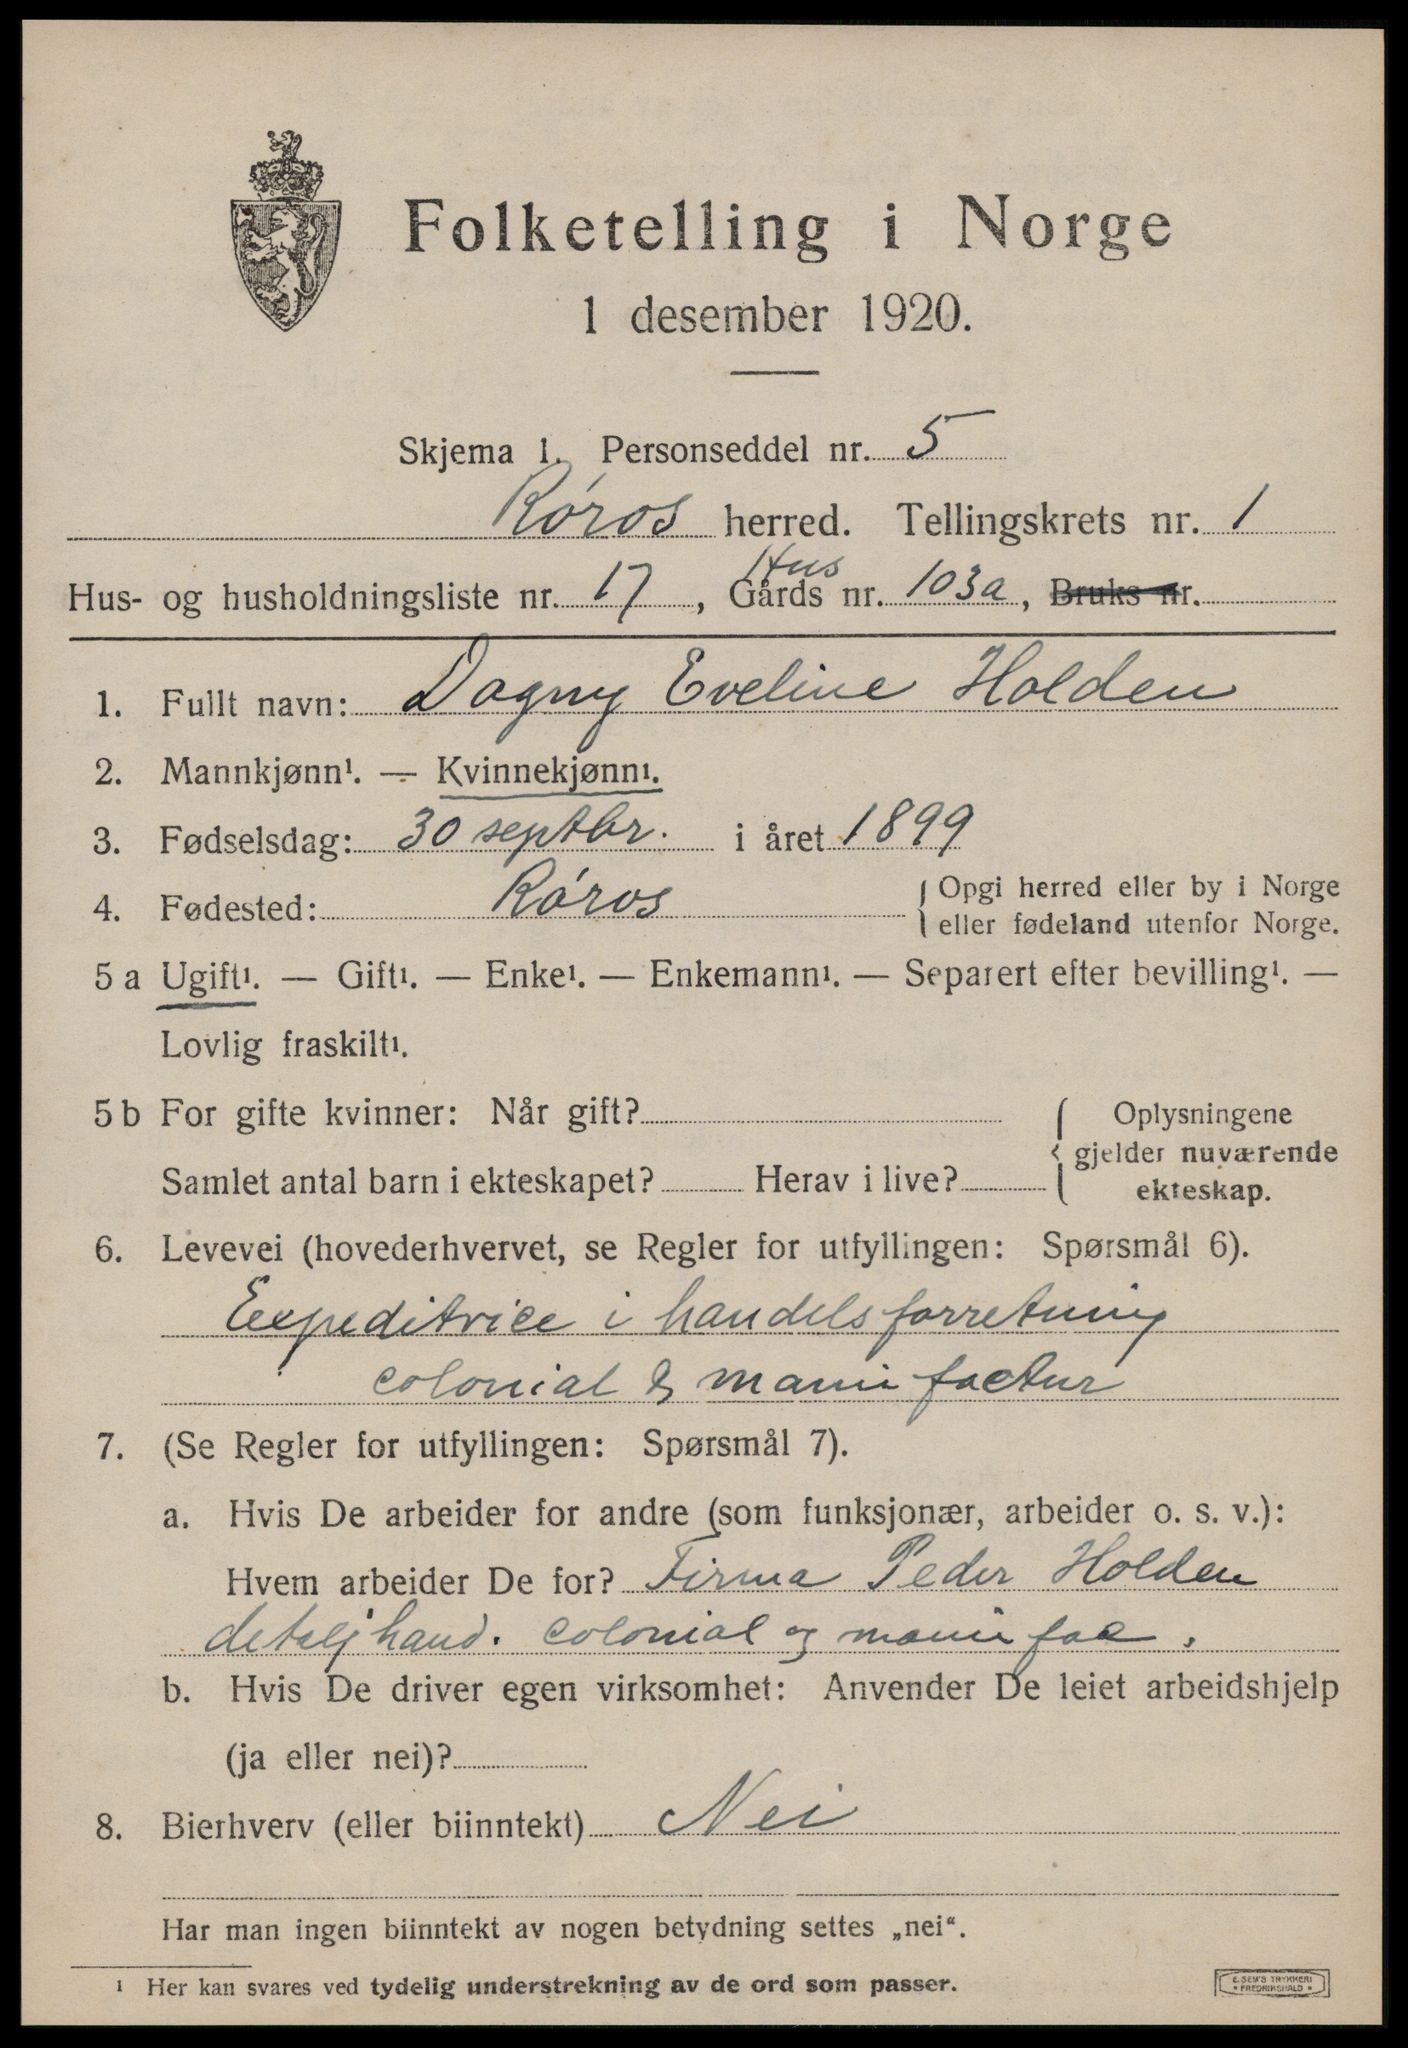 Folketelling i Norge
1 desember 1920.
Skjema 1. Personseddel nr. 5
Røros herred. Tellingskrets nr. 1
Hus
Hus- og husholdningsliste nr. 17, Gårds nr. 103a, Bruks nr.
1. Fullt navn: Dagny Eveline Holden
2. Mannkjønn¹. — Kvinnekjønn¹.
3. Fødselsdag: 30 septbr. i året 1899
4. Fødested: Røros { Opgi herred eller by i Norge
eller fødeland utenfor Norge.
5 a Ugift¹. — Gift¹. — Enke¹. — Enkemann¹. — Separert efter bevilling¹. —
Lovlig fraskilt¹.
5 b For gifte kvinner: Når gift? { Oplysningene
gjelder nuværende
Samlet antal barn i ekteskapet? Herav i live? ekteskap.
6. Levevei (hovederhvervet, se Regler for utfyllingen: Spørsmål 6).
Expeditrice i handelsforretning
colonial & manufactur
7. (Se Regler for utfyllingen: Spørsmål 7).
a. Hvis De arbeider for andre (som funksjonær, arbeider o. s. v.):
Hvem arbeider De for? Firma Peder Holden
detaljhand. colonial og manufac.
b. Hvis De driver egen virksomhet: Anvender De leiet arbeidshjelp
(ja eller nei)?
8. Bierhverv (eller biinntekt) Nei
Har man ingen biinntekt av nogen betydning settes „nei“.
¹ Her kan svares ved tydelig understrekning av de ord som passer.
E. SEM'S TRYKKERI
* FREDRIKSHALD *